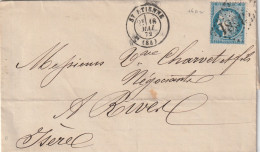 ST ETIENNE
18
MAI
72
(84)
Messieurs Vve Charvet et fils
Négociants
A Rives
Isère